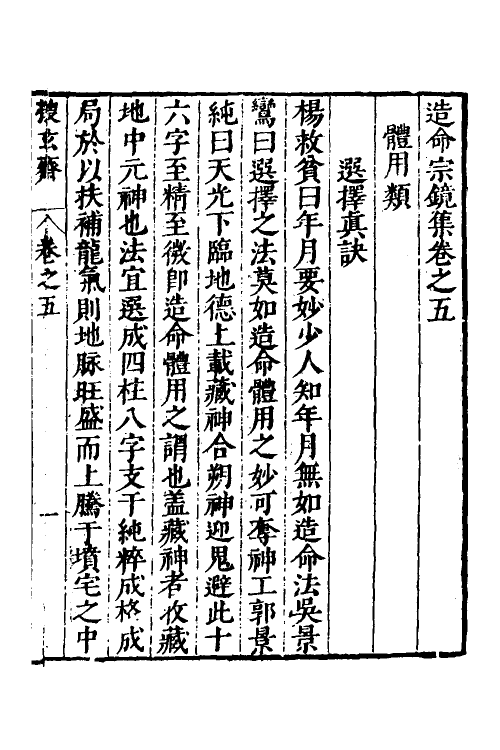 造命宗鏡集卷之五
體用類
選擇眞訣
楊救貧曰年月要妙少人知年月無如造命法吳景
鸞曰選擇之法莫如造命體用之妙可奪神工郭景
純曰天光下臨地德上載藏神合朔神迎鬼避此十
六字至精至微卽造命體用之謂也盖藏神者收藏
地中元神也法宜選成四柱八字支干純粹成格成
局於以扶補龍氣則地脉旺盛而上騰于墳宅之中
搜玄齋 卷之五 一